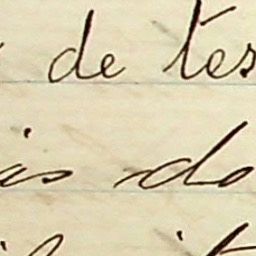 de tes
is do